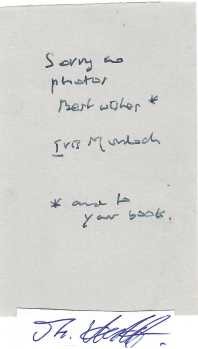 Sorry no
photos
Best wishes *
Iris Murdoch
* and to
your book.